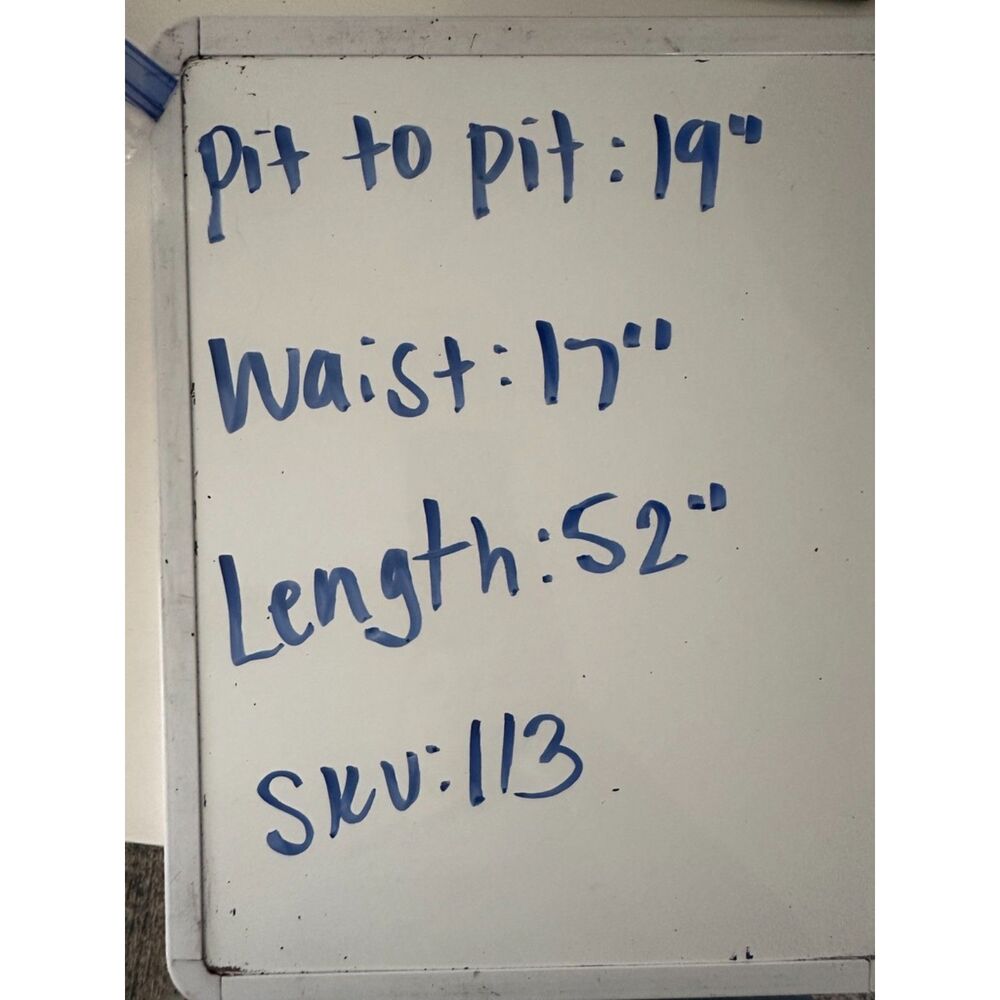 Pit to pit: 19"
Waist: 17"
Length: 52"
SKU: 113